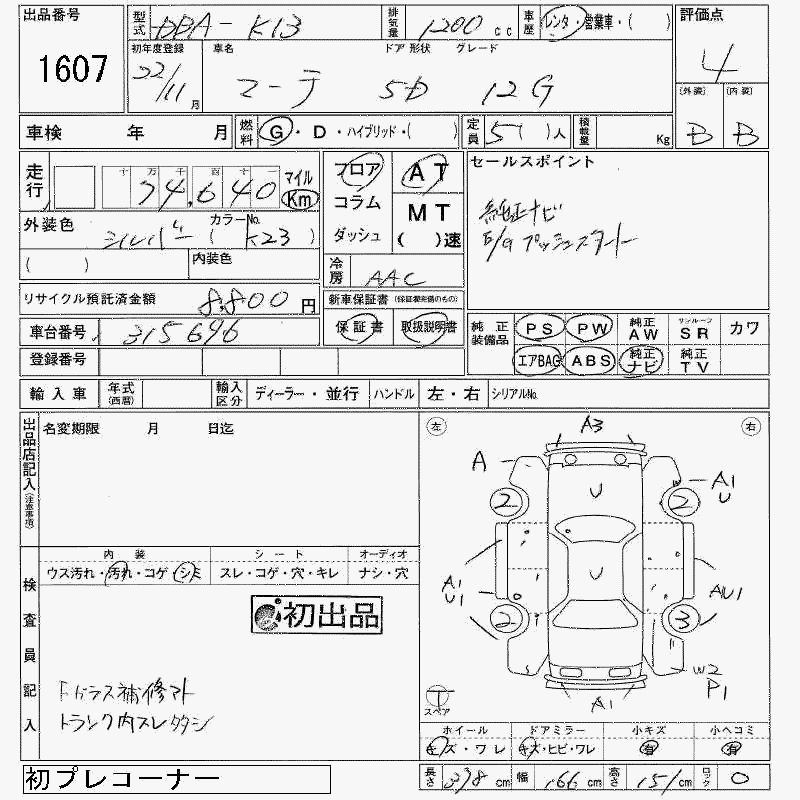 出品番号
1607
型式 DBA-K13
排気量 1200 cc
車歴 レンタ・営業車・( )
評価点
4
初年度登録 22/11月
車名 マーチ
ドア 形状 5D
グレード 12G
(外装) B
(内装) B
車検 年 月
燃料 G・D・ハイブリッド・( )
定員 5( )人
積載量 Kg
走行 十 万 千 百 十 一
74,640 マイル Km
フロア AT
コラム MT
ダッシュ ( )速
セールスポイント
純正ナビ
E/g プッシュスタート
外装色 シルバー
カラーNo. ( K23 )
( )
内装色
冷房 AAC
リサイクル預託済金額 8,800 円
新車保証書 (保証継続可能のもの)
保証書 取扱説明書
車台番号 315696
登録番号
純正装備品 PS PW 純正AW サンルーフSR カワ
エアBAG ABS 純正ナビ 純正TV
輸入車 年式(西暦) 輸入区分 ディーラー・並行 ハンドル 左・右 シリアルNo.
出品店記入(注意事項)
名変期限 月 日迄
左 右
A3
A
A1
U
2 2
U
U
A1
U1
AU1
2 3
W2
P1
A1
スペア
検査員記入
内装 シート オーディオ
ウス汚れ・汚れ・コゲ・シミ スレ・コゲ・穴・キレ ナシ・穴
初出品
Fガラス補修アト
トランク内スレ
ホイール ドアミラー 小キズ 小ヘコミ
キズ・ワレ キズ・ヒビ・ワレ 有 有
初プレコーナー
長さ 378 cm 幅 166 cm 高さ 151 cm ロック ○